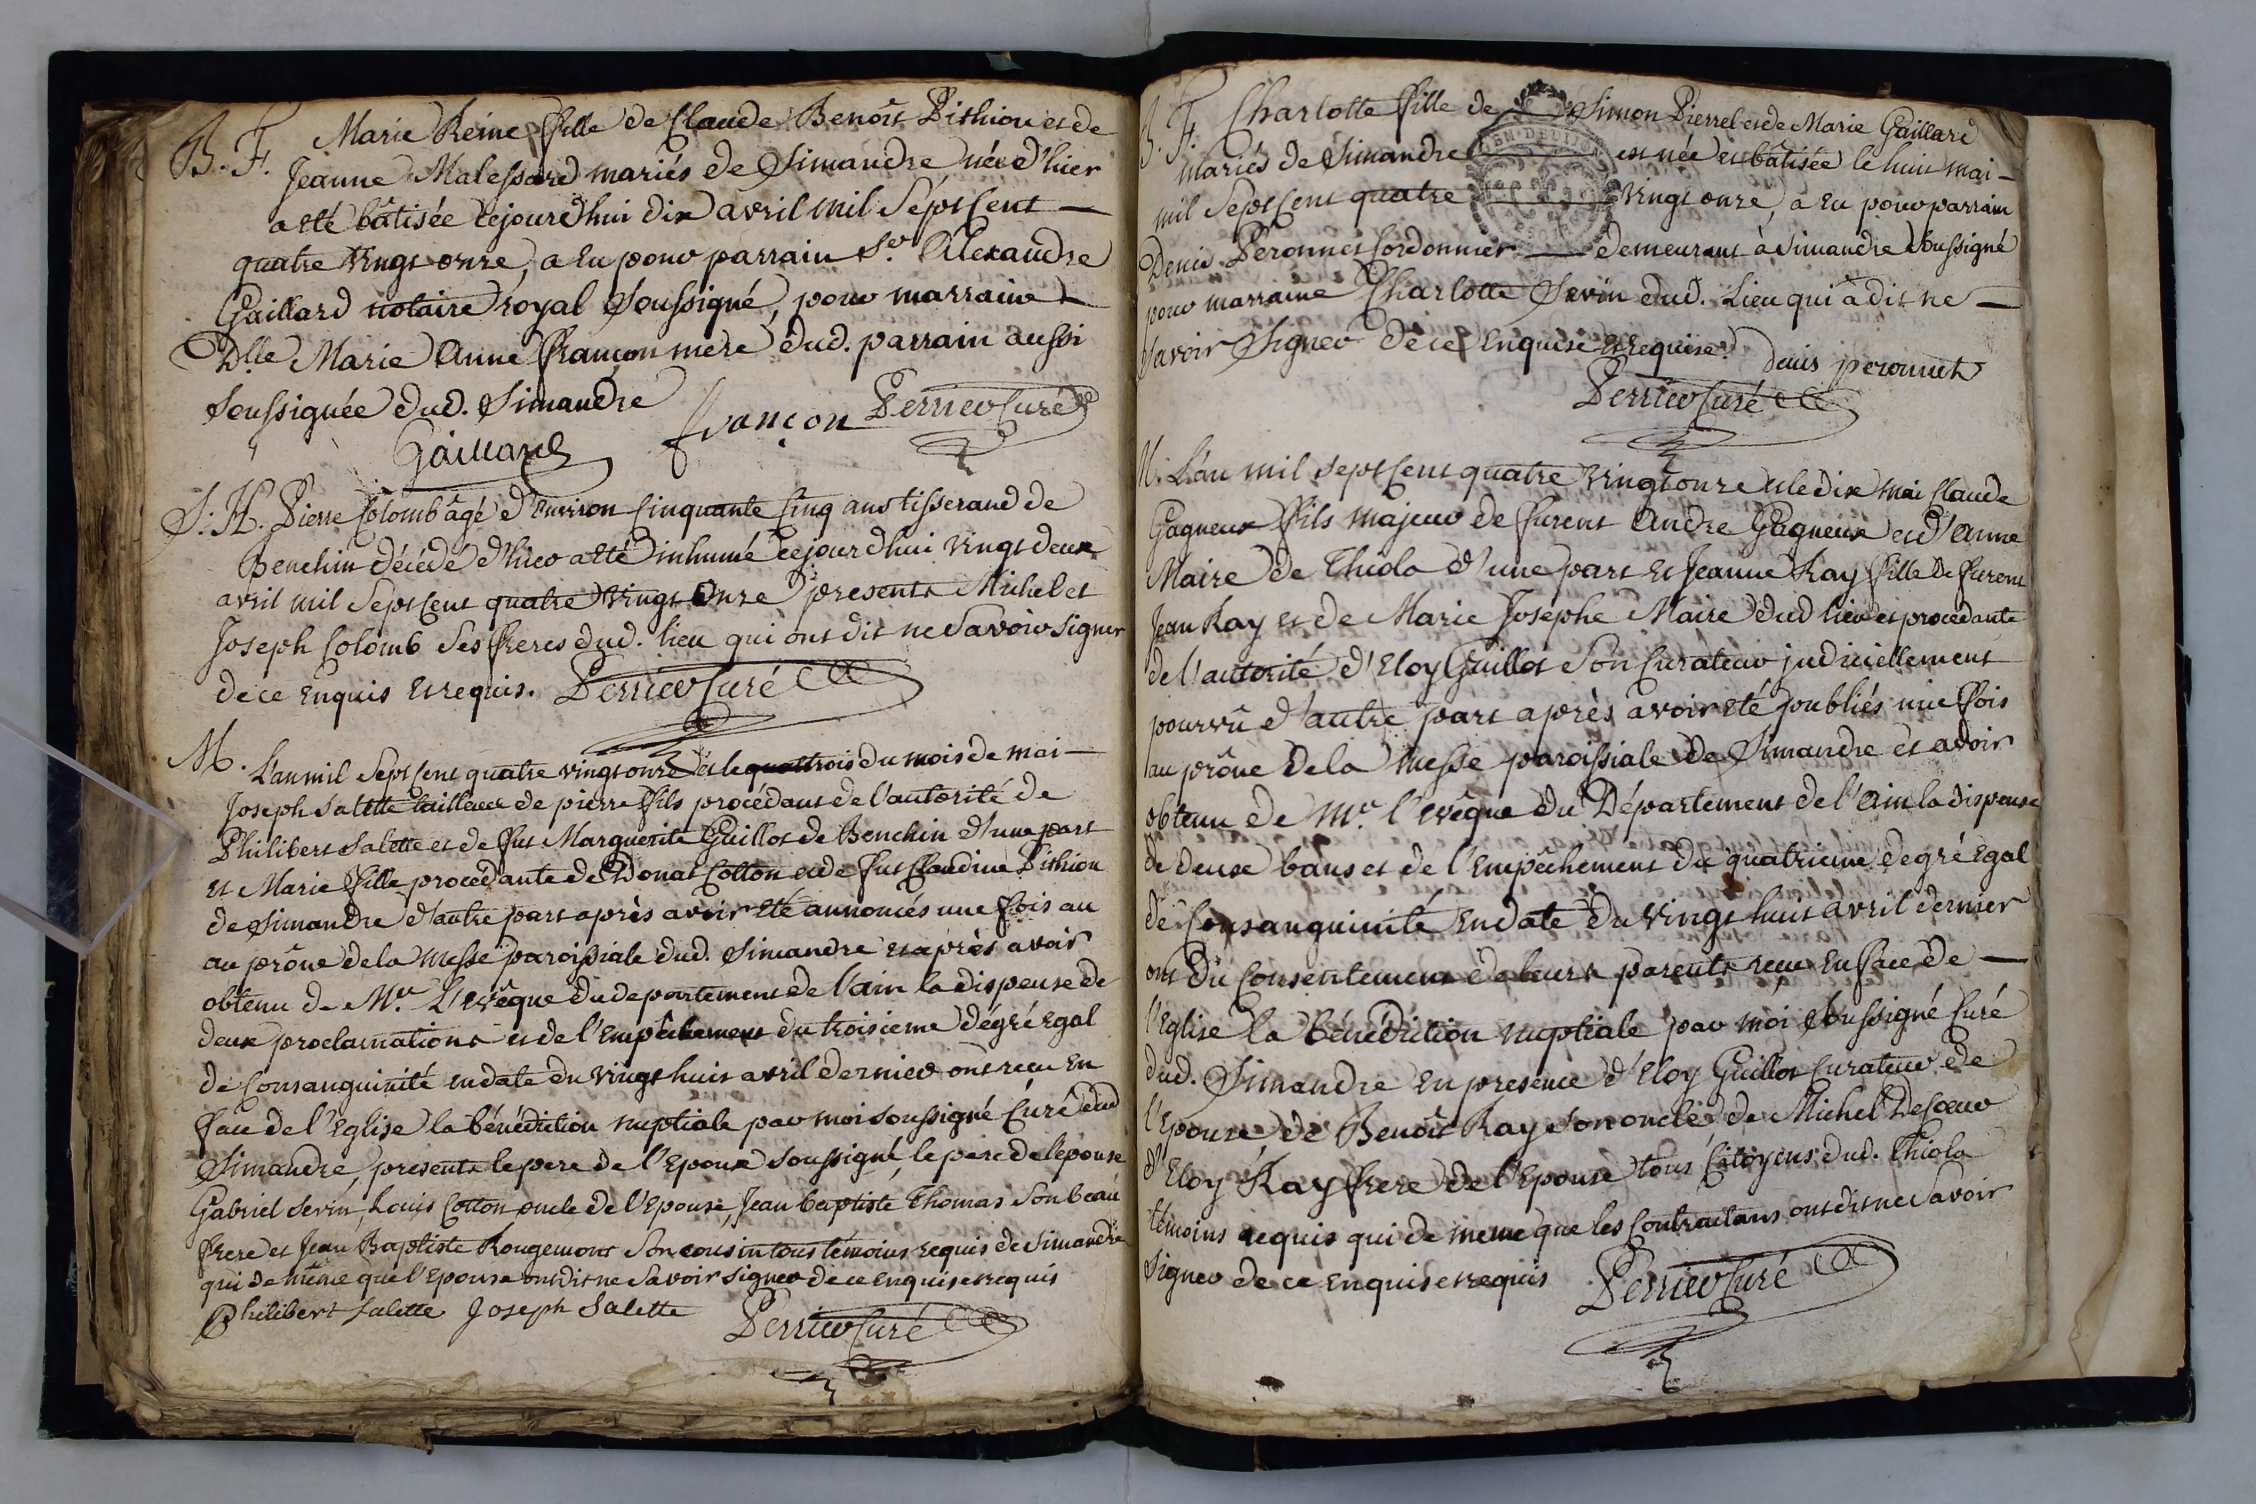 B. F. Marie Reine fille de Claude Benoît Pithion et de
Jeanne Malessard mariés de Simandre née d'hier
a été bâtisée cejourd'hui dix avril mil sept cent —
quatre vingt onze, a eu pour parrain Sr. Alexandre
Gaillard notaire royal soussigné, pour marraine
Dlle Marie Anne françon mere dud. parrain aussi
soussignée dud. Simandre
françon Perrier Curé
Gaillard
S. H. Pierre Colomb âgé d'environ cinquante cinq ans tisserand de
Benchin décédé d'hier a été inhumé cejourdhui vingt deux
avril mil sept cent quatre vingt onze presents Michel et
Joseph Colomb ses freres dud. lieu qui ont dit ne savoir signer
de ce enquis et requis. Perrier Curé
M. L'an mil sept cent quatre vingt onze et le trois du mois de mai —
Joseph Salette tailleur de pierre fils procédant de l'autorité de
Philibert Salette et de fut Marguerite Guillot de Benchin d'une part
et Marie fille procédante de Donat Cotton et de fut Claudine Pithion
de Simandre d'autre part après avoir été annoncés une fois au
au prône de la messe paroissiale dud. Simandre et après avoir
obtenu de Mr. L'evêque du departement de l'ain la dispense de
deux proclamations et de l'empêchement du troisieme dégré egal
de Consanguinité en date du vingt huit avril dernier ont reçu en
face de l'Eglise la bénédiction nuptiale par moi soussigné Curé dud
Simandre, presents le pere de l'Epoux soussigné, le pere de l'épouse
Gabriel Serin, Louis Cotton oncle de l'Epouse, Jean baptiste Thomas son beau
frere et Jean Baptiste Rougemont son cousin tous témoins requis de Simandre
qui de même que l'Epouse ont dit ne savoir signer de ce enquis et requis
Philibert Salette Joseph Salette Perrier Curé
B. F. Charlotte fille de Simon Pierrel et de Marie Gaillard
mariés de Simandre est née et bâtisée le huit mai —
mil sept cent quatre vingt onze, a eu pour parrain
Denis Peronnet Cordonnier demeurant à Simandre soussigné
pour marraine Charlotte Serin dud. Lieu qui a dit ne —
savoir signer de ce enquise et requise. denis peronnet
Perrier Curé
M. L'an mil sept cent quatre vingt onze et le dix mai Claude
Gagneux fils majeur de furent André Gagneux et d'Anne
Maire de Thiola d'une part et Jeanne Ray fille de furent
Jean Ray et de Marie Josephe Maire dud lieu et procedante
de l'autorité d'Eloy Guillot son Curateur judiciellement
pourvû d'autre part après avoir été publiés une fois
au prône de la messe paroissiale de Simandre et avoir
obtenu de Mr. l'evêque du Département de l'ain la dispense
de deux bans et de l'empêchement du quatrieme degré egal
de Consanguinité en date du vingt huit avril dernier
ont du Consentement de leurs parents reçu en face de —
l'Eglise la bénédiction nuptiale par moi soussigné Curé
dud. Simandre en presence d'Eloy Guillot Curateur de
l'Epouse de Benoît Ray son oncle de Michel Descœur
d'Eloy Ray frere de l'Epouse tous Citoyens dud. Thiola
témoins requis qui de meme que les Contractans ont dit ne savoir
signer de ce enquis et requis Perrier Curé